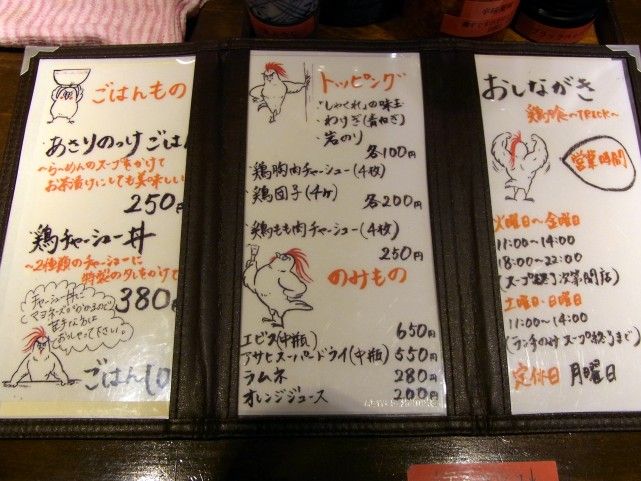 ごはんもの
あさりのっけごはん
～らーめんのスープをかけて
お茶漬けにしても美味しい
250円
鶏チャーシュー丼
～2種類のチャーシューに
特製のタレをかけて
380
チャーシュー丼に
マヨネーズが
おっしゃって下さい。
ごはん10
トッピング
・「しゃくれ」の味玉
・わけぎ(青ねぎ)
・岩のり
各100円
・鶏胸肉チャーシュー(4枚)
・鶏団子(4ヶ)
各200円
・鶏もも肉チャーシュー(4枚)
250円
のみもの
エビス(中瓶) 650円
アサヒスーパードライ(中瓶) 550円
ラムネ 280円
オレンジジュース 200円
おしながき
鶏喰～TRICK～
営業時間
火曜日～金曜日
11:00～14:00
18:00～22:00
(スープ終了次第閉店)
土曜日・日曜日
11:00～14:00
(ランチのみ スープ終了まで)
定休日 月曜日